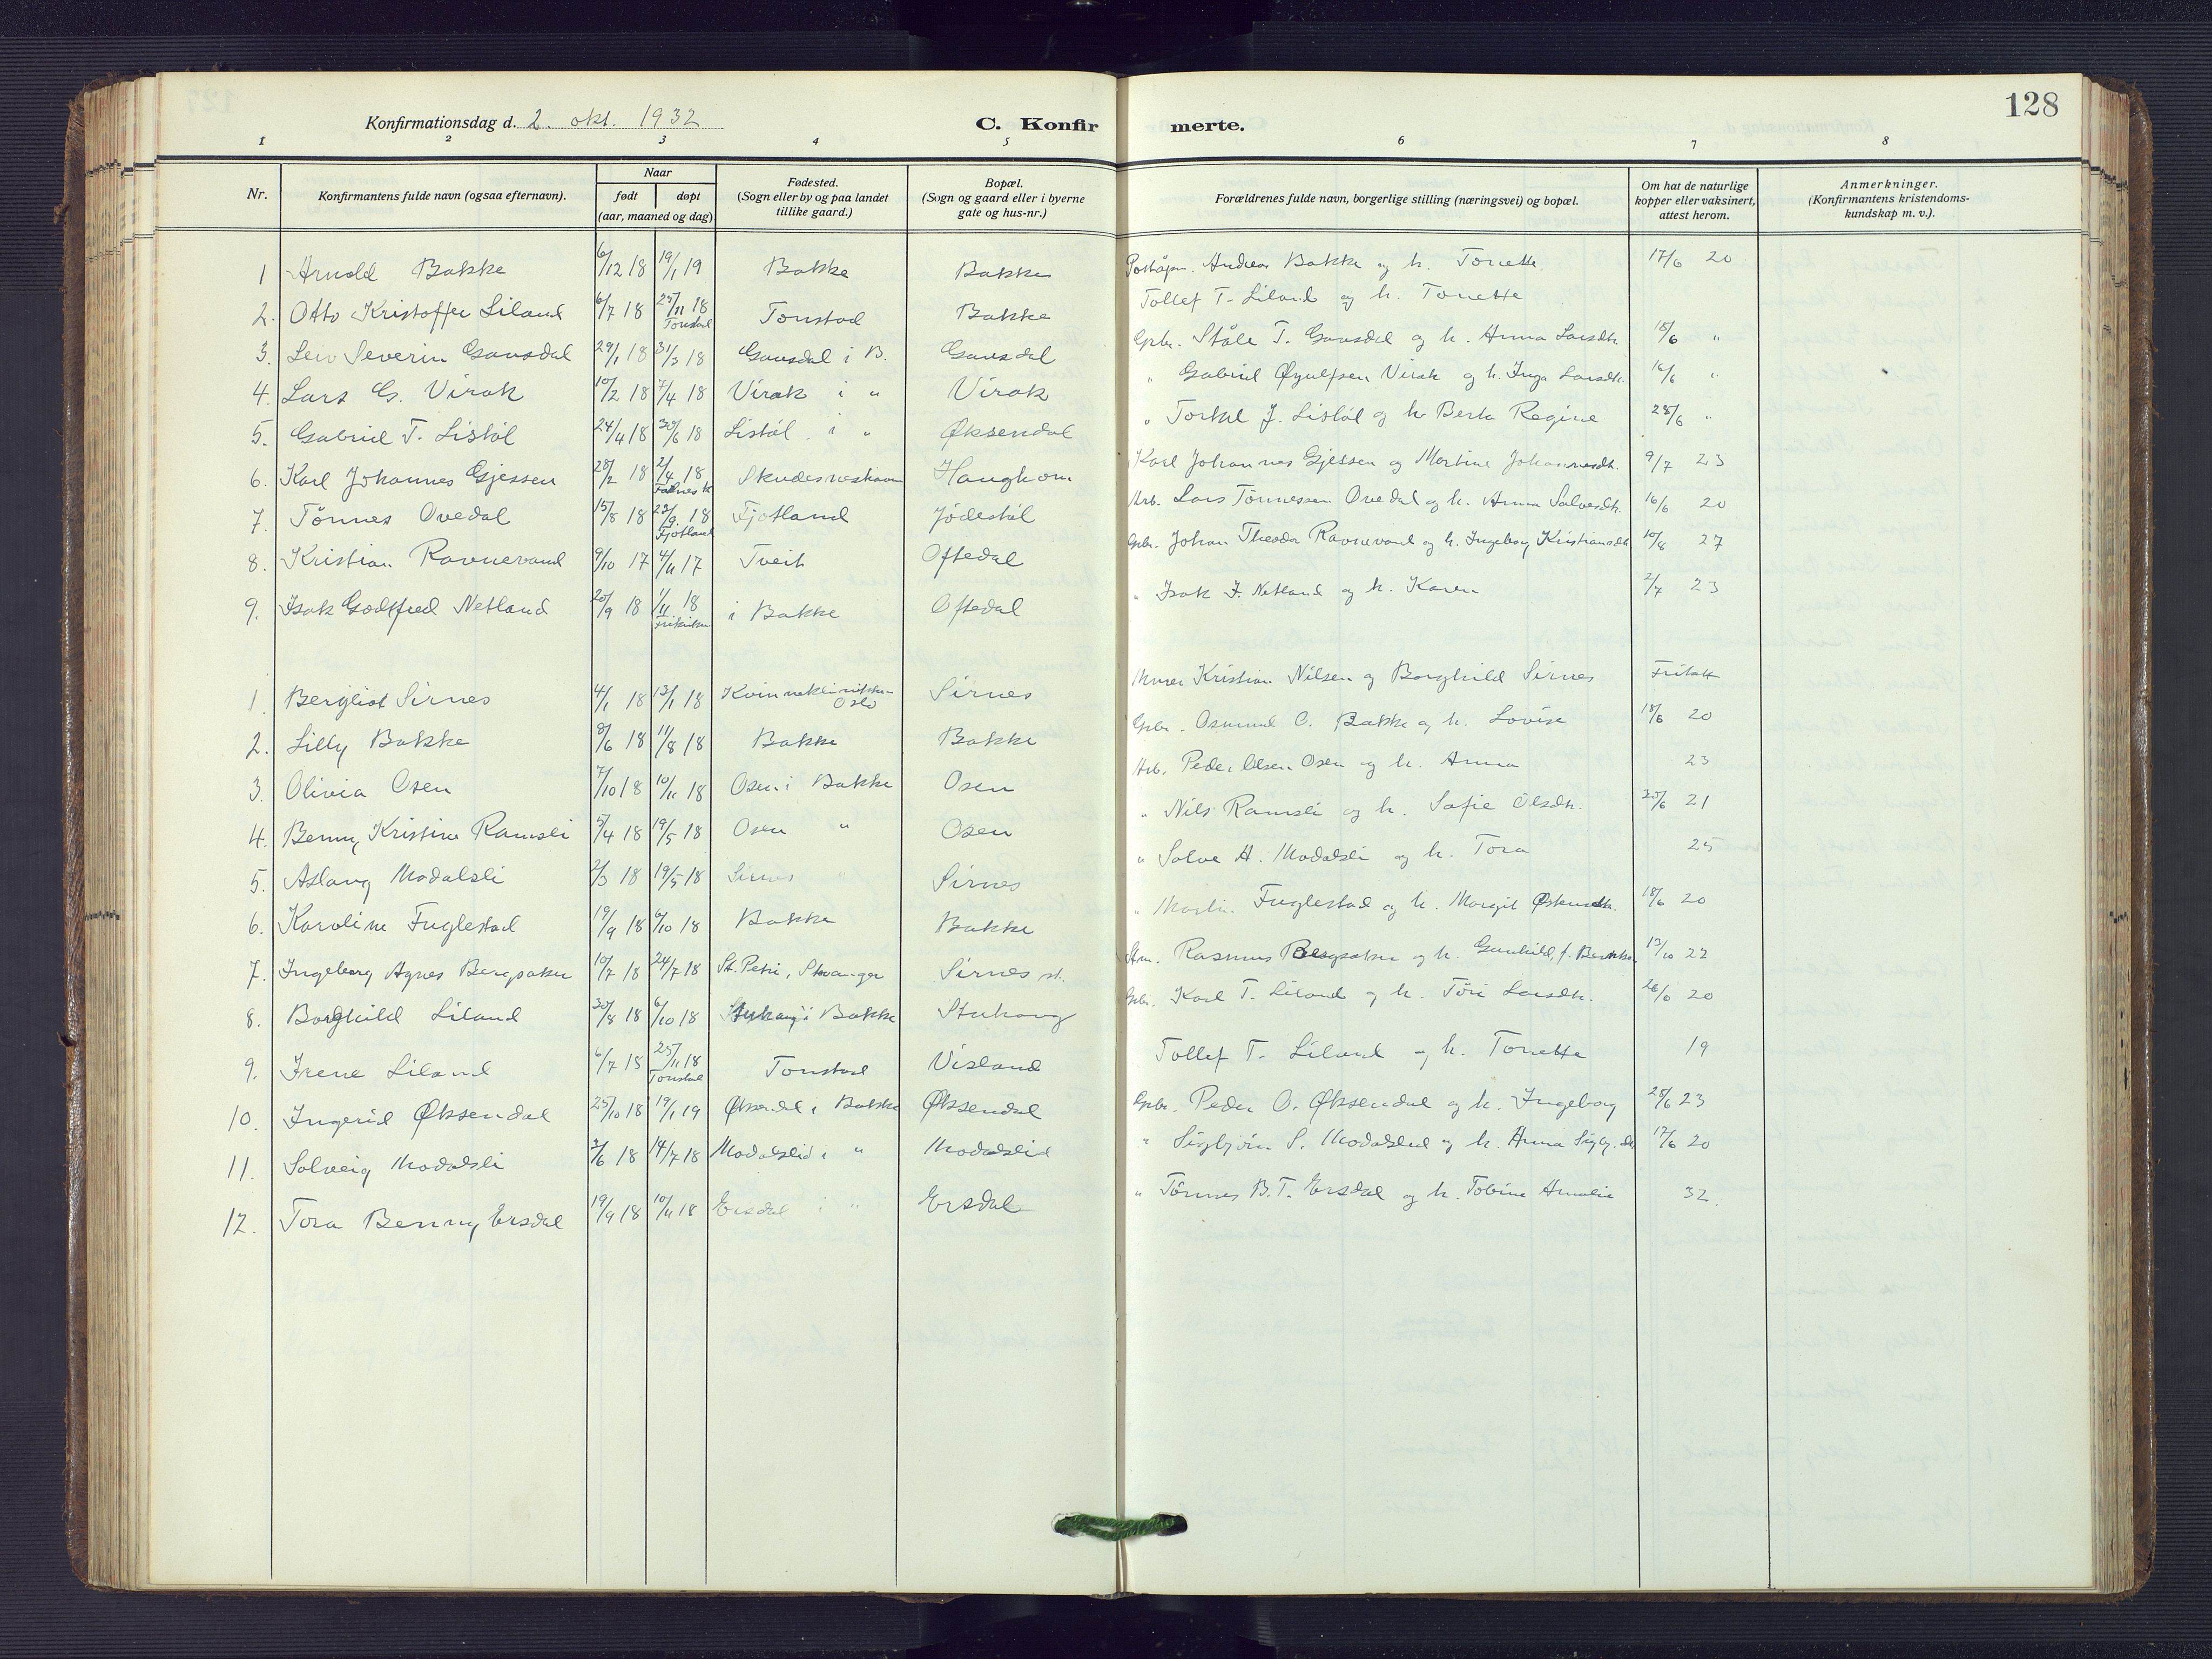 128
Konfirmationsdag d. 2. okt. 1932 C. Konfir merte.
1 2 3 4 5 6 7 8
Nr. Konfirmantens fulde navn (ogsaa efternavn). Naar født døpt (aar, maaned og dag) Fødested. (Sogn eller by og paa landet tillike gaard.) Bopæl. (Sogn og gaard eller i byerne gate og hus-nr.) Forældrenes fulde navn, borgerlige stilling (næringsvei) og bopæl. Om hat de naturlige kopper eller vaksinert, attest herom. Anmerkninger. (Konfirmantens kristendoms-kundskap m. v.).
1 Arnold Bakke 6/12 18 19/1 19 Bakke Bakke Poståpn. Andreas Bakke og h. Tonette 17/6 20
2. Otto Kristoffer Liland 6/7 18 25/11 18 Tonstad Tonstad Bakke Tollef T. Liland og h. Tonette
3. Leiv Severin Gausdal 29/1 18 31/3 18 Gausdal i B. Gausdal Gbr. Ståle T. Gausdal og h. Anna Larsdtr. 18/6 "
4. Lars G. Virak 10/2 18 7/4 18 Virak i " Virak " Gabriel Øyulfsen Virak og h. Inga Larsdtr. 16/6 "
5. Gabriel T. Listøl 24/4 18 30/6 18 Listøl i " Øksendal " Torkel J. Listøl og h. Berta Regine 28/6 "
6. Karl Johannes Gjessen 28/2 18 2/4 18 Skudesneshavn Haughom Karl Johannes Gjessen og Martine Johannesdtr. 9/7 23
7. Tønnes Ovedal 15/8 18 22/9 18 Fjotland Fjotland Jødestøl Arb. Lars Tønnessen Ovedal og h. Anna Salvesdtr. 16/6 20
8. Kristian Ravnevand 9/10 17 4/11 17 Tveit Oftedal Gbr. Johan Theodor Ravnevand og h. Ingeborg Kristiansdtr. 10/8 27
9. Isak Godtfred Netland 20/9 18 1/11 18 Frikirken i Bakke Oftedal " Isak F. Netland og h. Karen 2/7 23
1. Bergliot Sirnes 4/1 18 13/1 18 Kvinneklinikken Oslo Sirnes Murer Kristian Nilsen og Borghild Sirnes Fritatt
2. Lilly Bakke 8/6 18 11/8 18 Bakke Bakke Gbr. Osmund O. Bakke og h. Lovise 18/6 20
3. Olivia Osen 7/10 18 10/11 18 Osen i Bakke Osen Arb. Peder Olsen Osen og h. Anna 23
4. Benny Kristine Ramsli 5/4 18 19/5 18 Osen " Osen " Nils Ramsli og h. Sofie Olsdtr. 20/6 21
5. Aslaug Modalsli 2/3 18 19/5 18 Sirnes " Sirnes " Salve A. Modalsli og h. Tora 25
6. Karoline Fuglestad 19/9 18 6/10 18 Bakke Bakke " Martin Fuglestad og h. Margit 18/6 20
7. Ingeborg Agnes Bergsaker 10/7 18 24/7 18 St. Petri, Stavanger Sirnes st. Rasmus Bergsaker og h. Gunhild, f. 13/10 22
8. Borghild Liland 30/8 18 6/10 18 Stuhaug i Bakke Stuhaug Gbr. Karl T. Liland og h. Tøri Larsdtr. 26/6 20
9. Irene Liland 6/7 18 25/11 18 Tonstad Tonstad Visland Tollef T. Liland og h. Tonette 19
10. Ingerid Øksendal 25/10 18 19/1 19 Øksendal i Bakke Øksendal Gbr. Peder O. Øksendal og h. Ingeborg 28/6 23
11. Solveig Modalsli 3/6 18 14/7 18 Modalslid i " Modalslid " Sigbjørn S. Modalslid og h. Anna Sigbj.dtr. 17/6 20
12. Tora Benny Ersdal 19/9 18 10/11 18 Ersdal i " Ersdal " Tønnes B. T. Ersdal og h. Tobine Amalie 32.